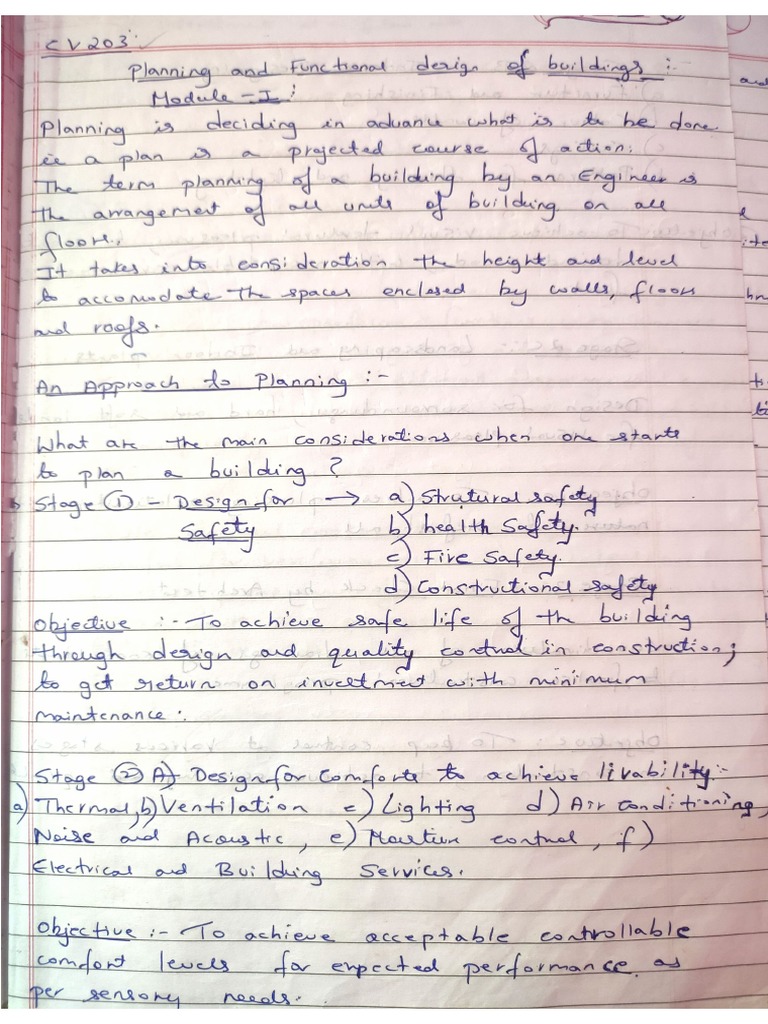 CV203:
Planning and Functional design of buildings:-
Module-I:
Planning is deciding in advance what is to be done
ie a plan is a projected course of action.
The term planning of a building by an Engineer is
the arrangement of all units of building on all
floors.
It takes into consideration the height and level
to accomodate the spaces enclosed by walls, floors
and roofs.
An Approach to Planning :-
What are the main considerations when one starts
to plan a building ?
Stage ① - Design for → a) Strutural safety
Safety b) health Safety.
c) Fire Safety.
d) Constructional safety
Objective :- To achieve safe life of the building
through design and quality control in construction;
to get return on investment with minimum
maintenance.
Stage ② A) Design for Comforts to achieve livability:-
a) Thermal, b) Ventilation c) Lighting d) Air conditioning,
Noise and Acoustic, e) Moisture control, f)
Electrical and Building Services.
Objective :- To achieve acceptable controllable
comfort levels for expected performance as
per sensory needs.